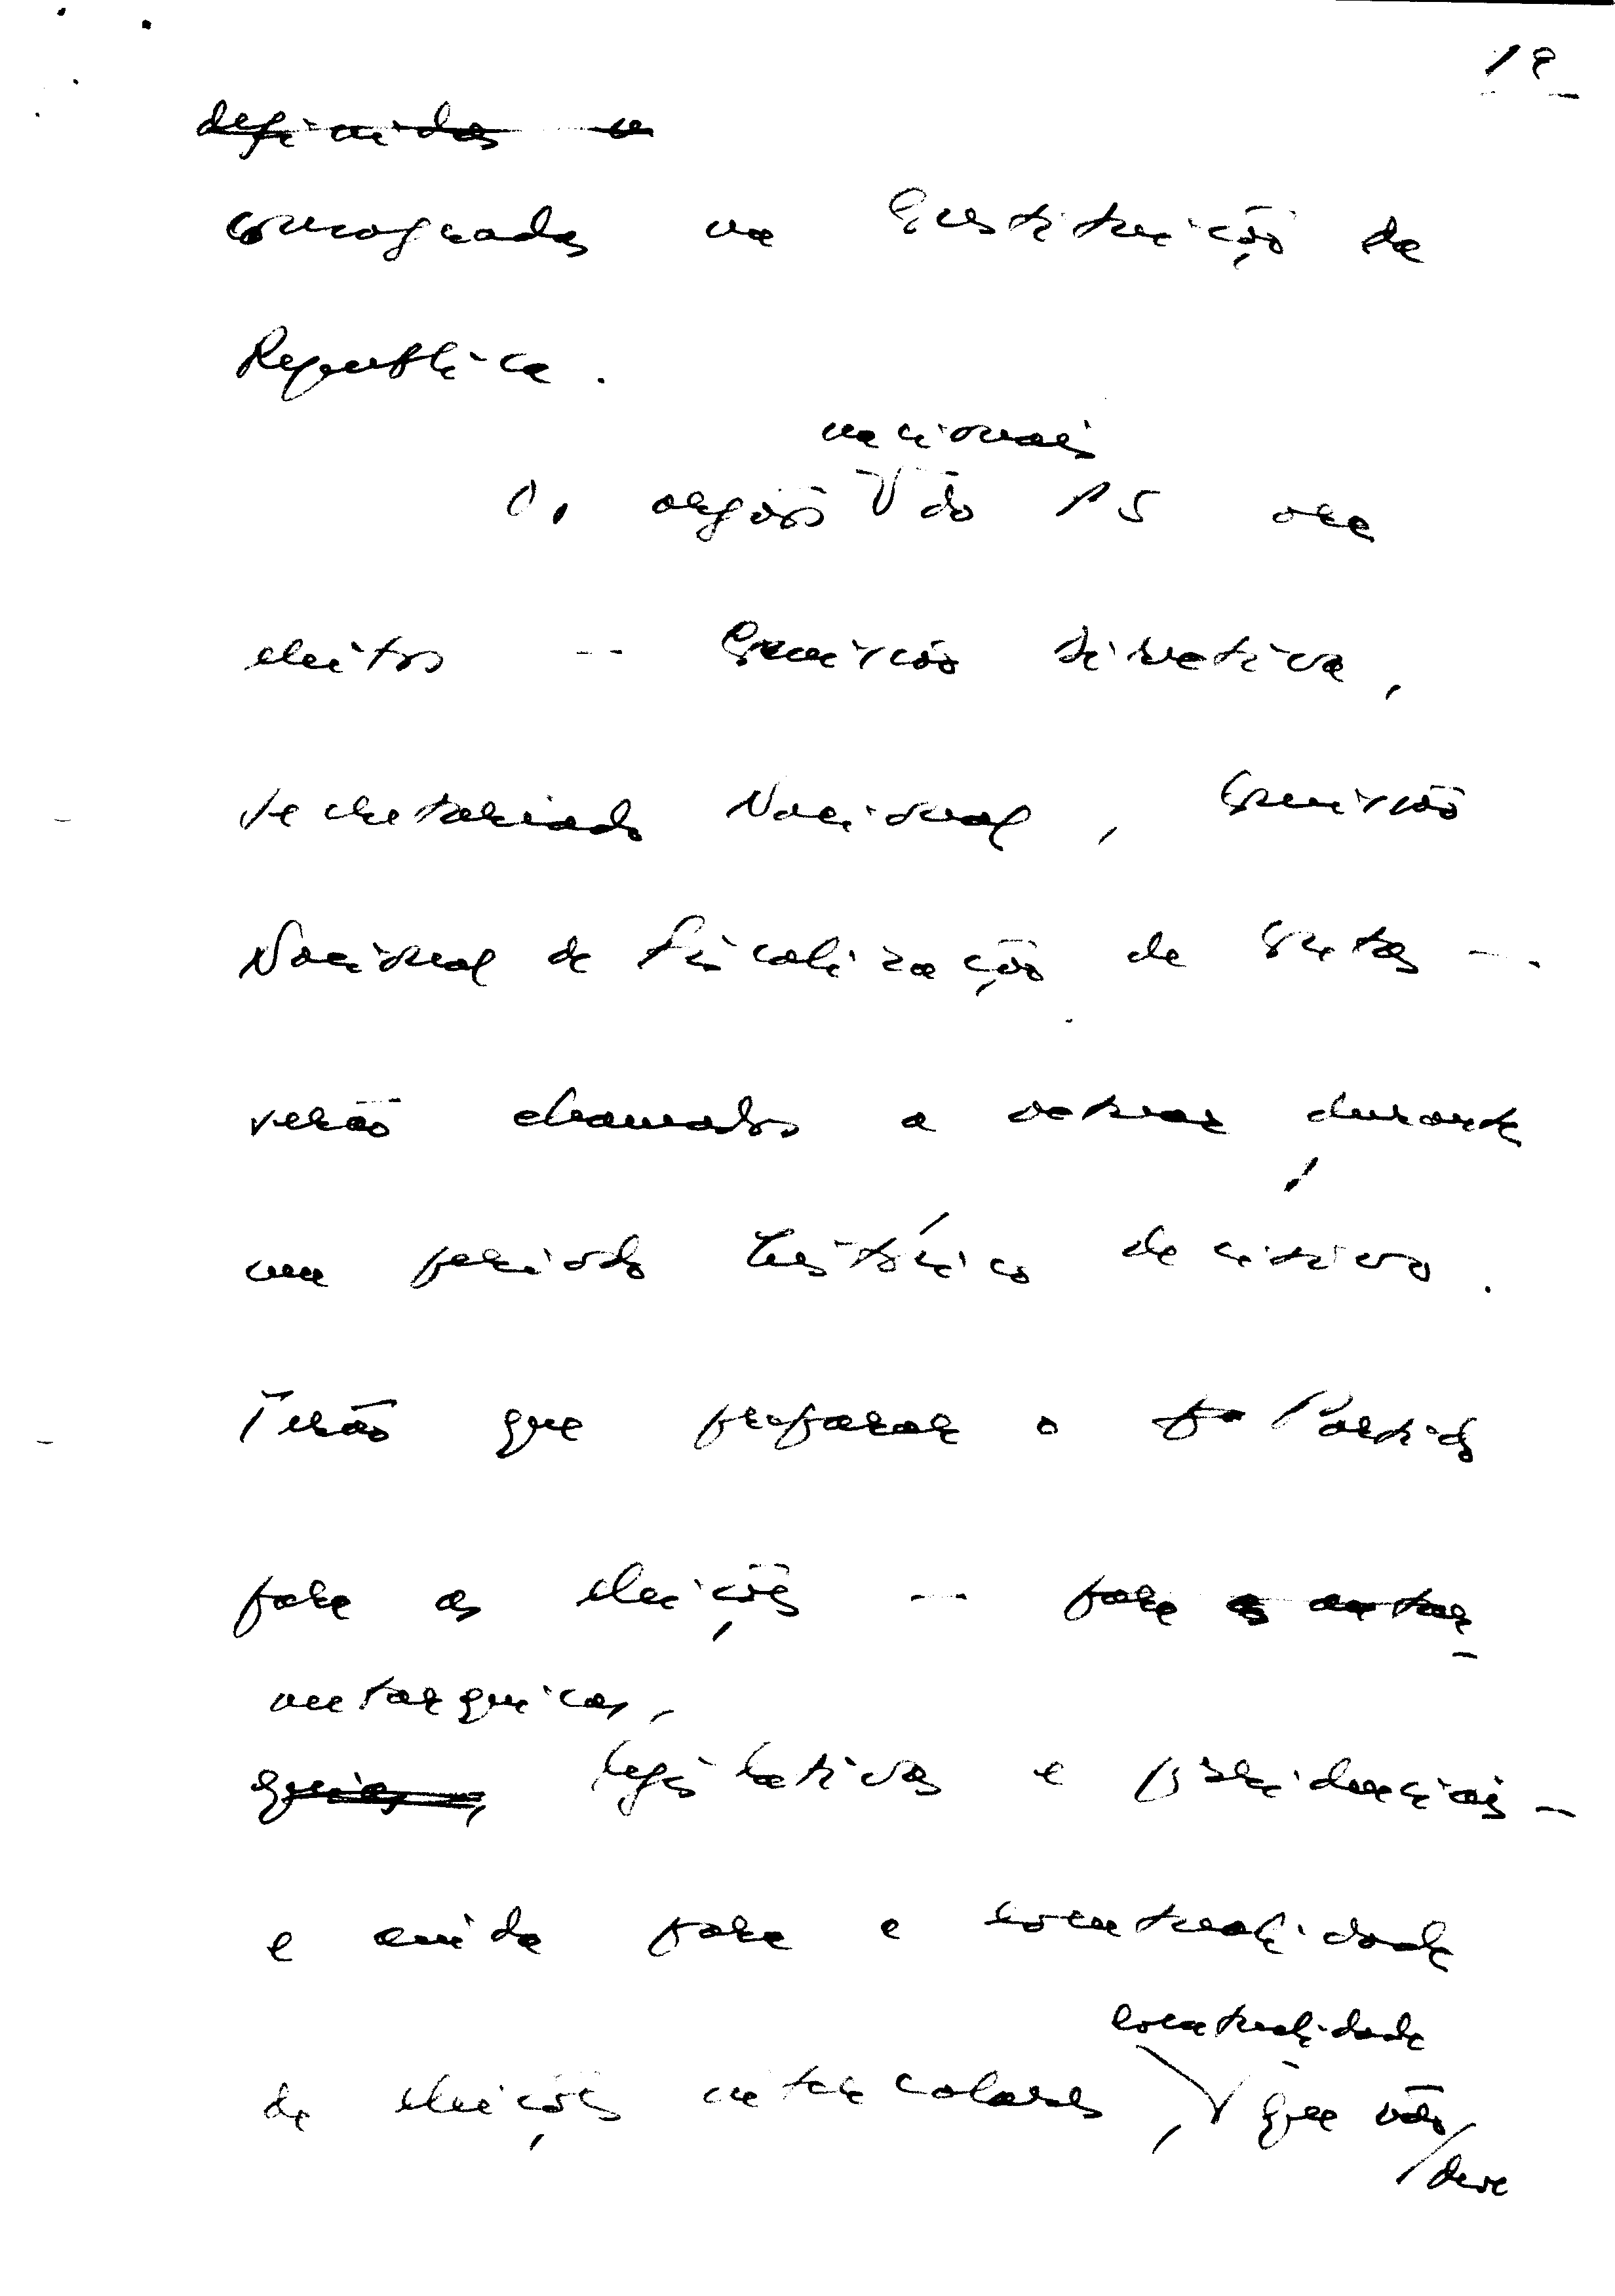 19
definidos e
consagrados na Constituição da
República.
nacionais
Os orgãos do PS ora
eleitos — Comissão Directiva,
Secretariado Nacional, Comissão
Nacional de Fiscalização de Contas —
serão chamados a actuar durante
um período histórico decisivo.
Terão que preparar o pa Partido
para as eleições — para as autar
autarquicas,
quicas, legislativas e presidenciais —
e ainda para a eventualidade
eventualidade
de eleições intercalares, que não
deve